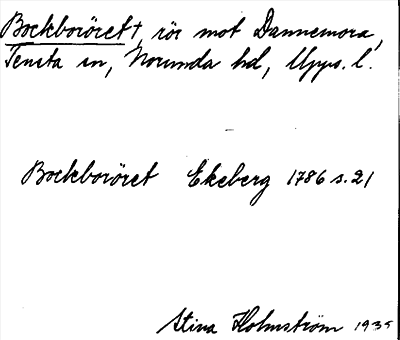 Bockboröret†, rör mot Dannemora,
Tensta sn, Norunda hd, Upps. l.
Bockboröret Ekeberg 1786 s. 21
Stina Holmström 1935